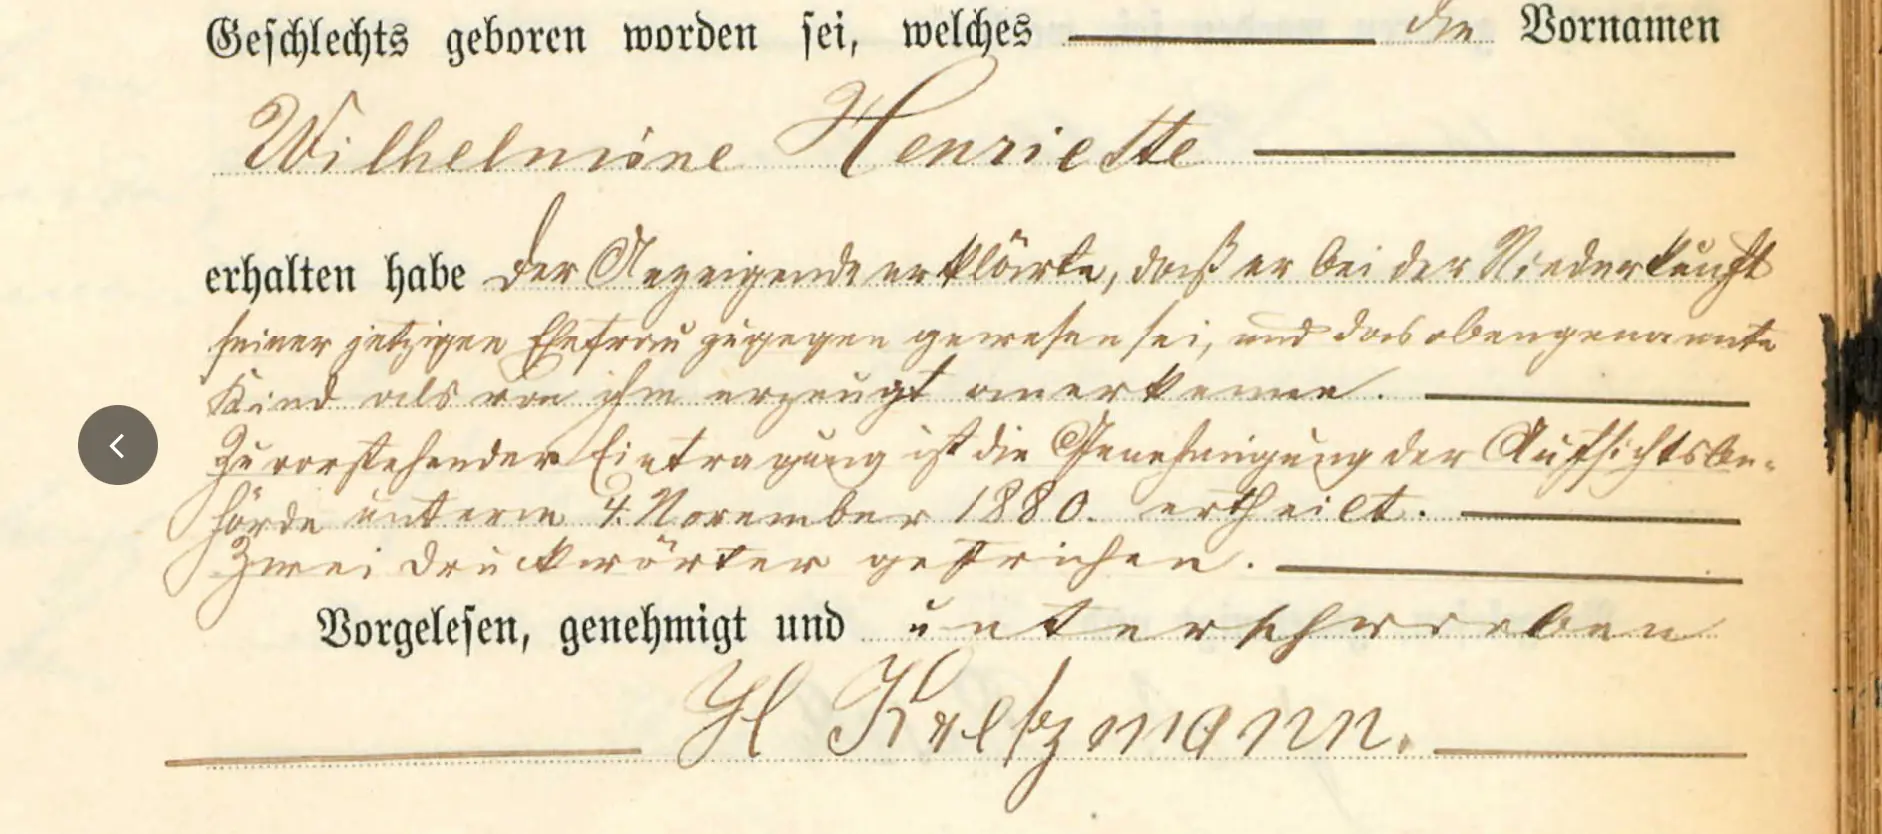 Geschlechts geboren worden sei, welches die Vornamen
Wilhelmine Henriette
erhalten habe Der Anzeigende erklärte, daß er bei der Niederkunft
seiner jetzigen Ehefrau zugegen gewesen sei, und das obengenannte
Kind als von ihm erzeugt anerkenne.
Zu vorstehender Eintragung ist die Genehmigung der Aufsichtsbe-
hörde unterm 4. November 1880. ertheilt.
Zwei Druckwörter gestrichen.
Vorgelesen, genehmigt und unterschrieben
H Kretzmann.